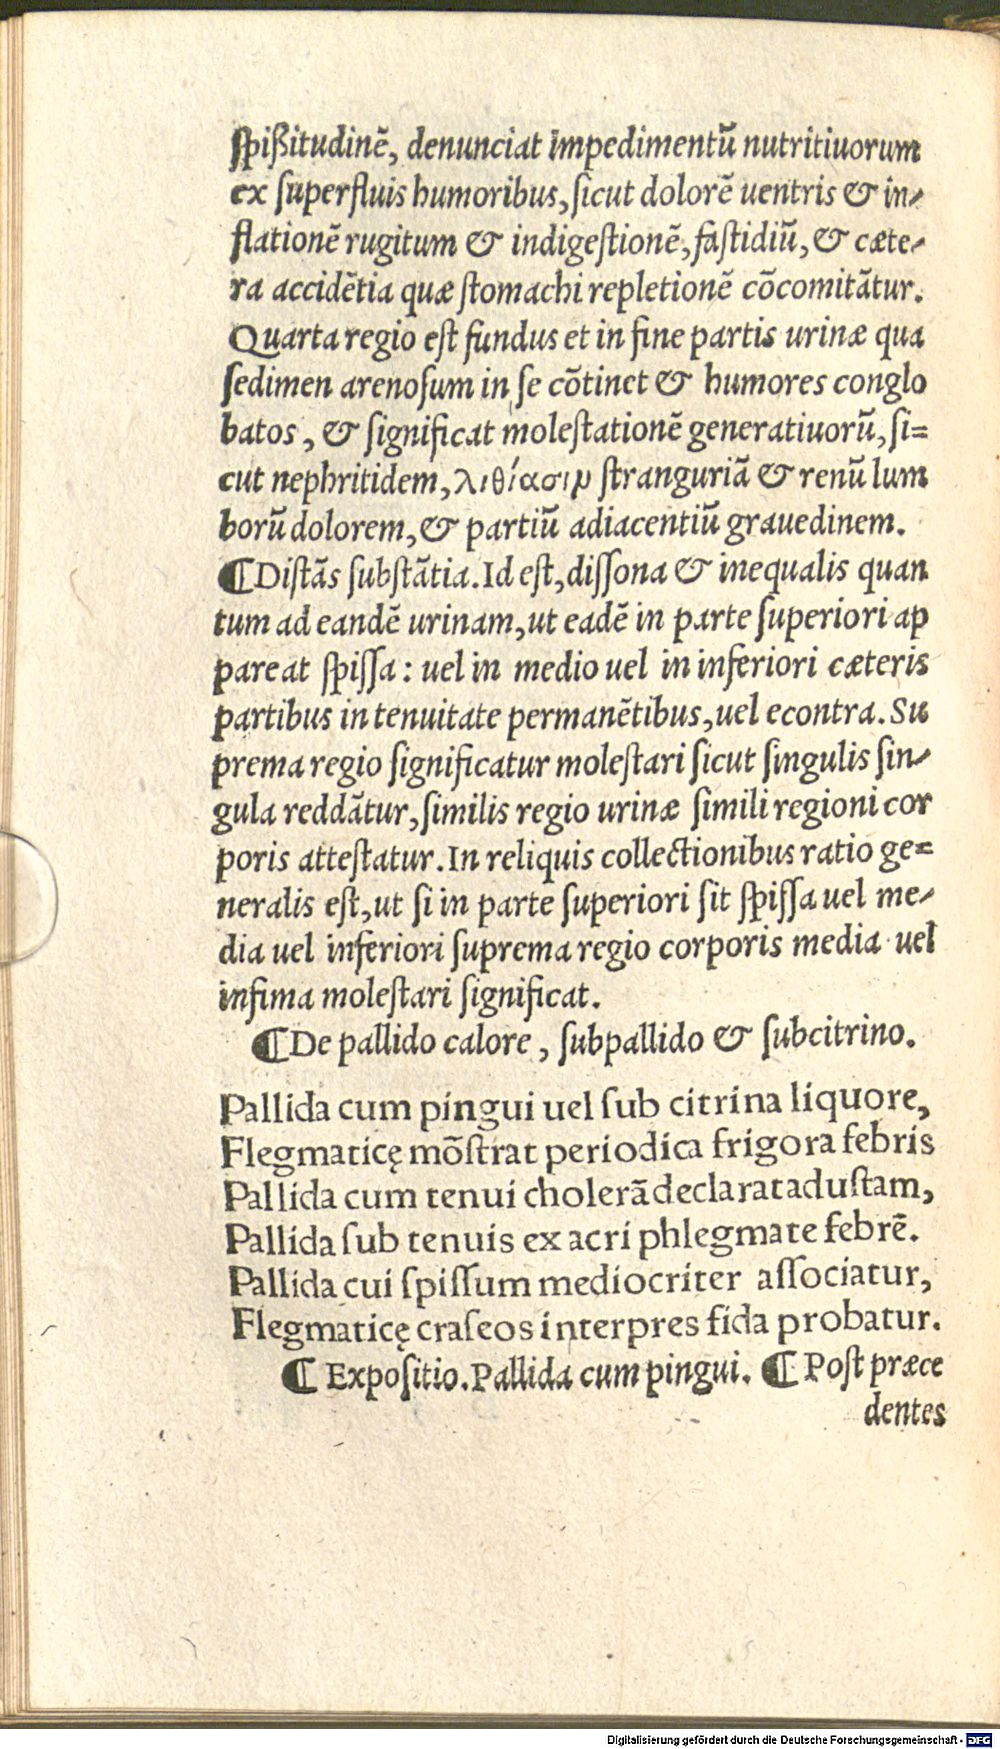 ſpißitudinē, denunciat impedimentū nutritiuorum
ex ſuperfluis humoribus, ſicut dolorē uentris & in⸗
flationē rugitum & indigeſtionē, faſtidiū, & cæte⸗
ra accidētia quæ ſtomachi repletionē cōcomitātur.
Quarta regio eſt fundus et in fine partis urinæ qua
ſedimen arenoſum in ſe cōtinet & humores conglo
batos, & ſignificat moleſtationē generatiuorū, ſi=
cut nephritidem, λιθίασιν ſtranguriā & renū lum
borū dolorem, & partiū adiacentiū grauedinem.
¶ Diſtās ſubſtātia. Id eſt, diſſona & inequalis quan
tum ad eandē urinam, ut eadē in parte ſuperiori ap
pareat ſpiſſa: uel in medio uel in inferiori cæteris
partibus in tenuitate permanētibus, uel econtra. Su
prema regio ſignificatur moleſtari ſicut ſingulis ſin⸗
gula reddātur, ſimilis regio urinæ ſimili regioni cor
poris atteſtatur. In reliquis collectionibus ratio ge=
neralis eſt, ut ſi in parte ſuperiori ſit ſpiſſa uel me⸗
dia uel inferiori ſuprema regio corporis media uel
infima moleſtari ſignificat.
¶ De pallido calore, ſubpallido & ſubcitrino.
Pallida cum pingui uel ſub citrina liquore,
Flegmaticę mōſtrat periodica frigora febris
Pallida cum tenui cholerā declarat aduſtam,
Pallida ſub tenuis ex acri phlegmate febrē.
Pallida cui ſpiſſum mediocriter aſſociatur,
Flegmaticę craſeos interpres fida probatur.
¶ Expoſitio. Pallida cum pingui. ¶ Poſt præce
dentes
Digitalisierung gefördert durch die Deutsche Forschungsgemeinschaft - DFG